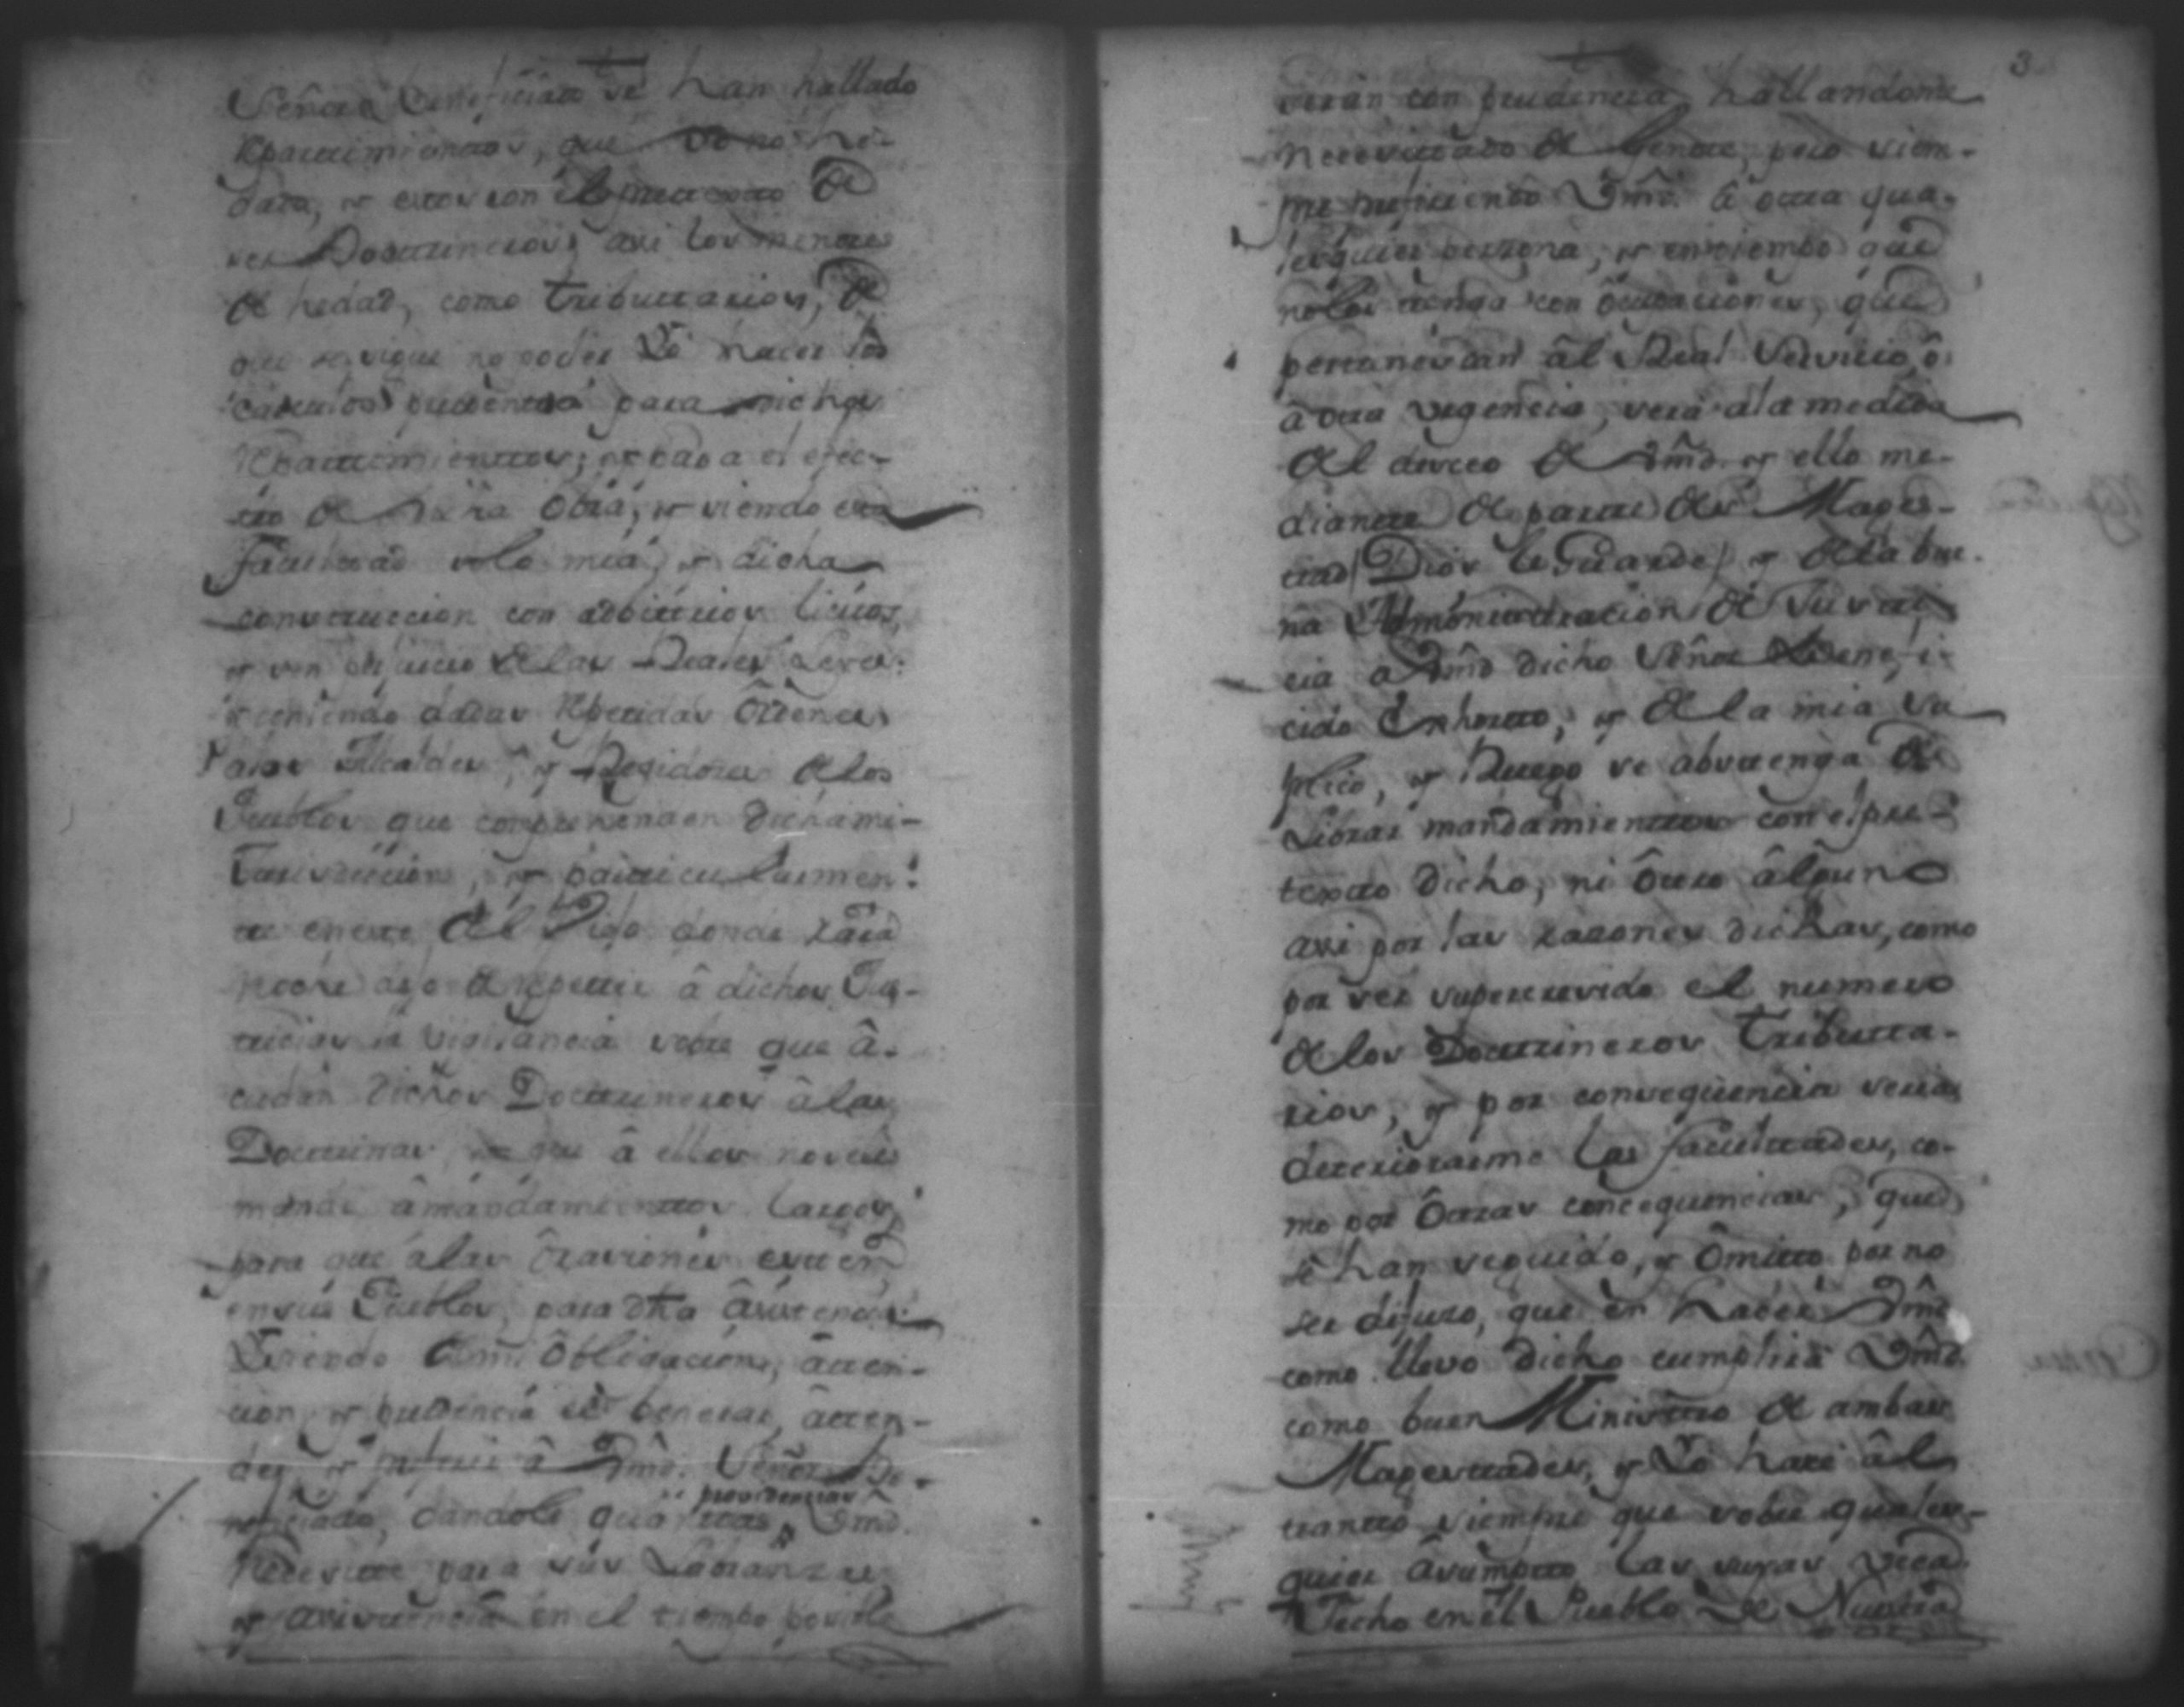 Señor Beneficiado se han hallado
Rpartimientos, que Yo no he
dado, y estos con el pretexto de
ser Doctrineros, asi los menores
de hedad, como tributarios, de
que se sigue no poder Yo hacer los
calculos prudentes para mis
Rpartimientos; y para el efec-
to de obra; y siendo esta
facultad solo mia, y dicha
construccion con adbitrios licitos,
y sin de las Reales Leyes:
y teniendo dadas Rpetidas Ordenes
alos Alcaldes, y Regidores de los
Pueblos que comprehenden dicha mi
Jurisdiccion, y particularmen-
te eneste del donde cada
noche dejo de Rpetir â dichos Jus-
ticias la vigilancia sobre que â-
cudan dichos Doctrineros âlas
Doctrinas, y que â ellos no seles
mande âmandamientos largos,
para que alas Ôcasiones esten
ensus Pueblos, para dha âsistencia
Siendo demi Ôbligacion, âten-
cion, y prudencia el benerar, âten-
der, y preferir â Vmd. Señor Be-
neficiado, dandole quantas providencias Vmd.
Necesite para sus Labranzas
y asistencia en el tiempo posible
3
seran con prudencia, hallandome
Necesitado de Gente, pero siem-
pre prefiriendo Vmd. â otra qua-
lesquier persona, y entiempo que
nolos tenga con ôcupaciones, que
pertenescan âl Real Servicio, ô
â otra urgencia, sera ala medida
del deseo de Vmd. y ello me-
diante de parte de su Mages-
tad (Dios le Guarde) y dela bue-
na Administracion de Justi-
cia a Vmd dicho Señor Benefi-
ciado Exhorto, y dela mia Su
plico, y Ruego se abstenga de
Librar mandamientos con el pre-
texto dicho, ni Ôtro âlguno
asi por las razones dichas, como
por ser supercrevido el numero
delos Doctrineros tributa-
rios, y por consequencia seria
deteriorarme las facultades, co-
mo por Ôtras concequencias, que
se han seguido, y Ômito por no
ser difuso, que en hacer Vmd
como llevo dicho cumplira Vmd.
como buen Ministro de ambas
Magestades, y Yo hare âl
tanto siempre que sobre quales-
quier âsumpto las suyas Vea
Fecho en êl Pueblo de Nuestra